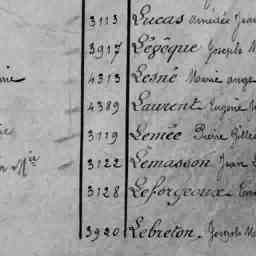 3113 Lucas amédée Jean
3917 Lévêque Joseph M
4313 Lesné Marie ange
4389 Laurent Eugène M
3119 Lemée Pierre Gilles
3122 Lemasson Jean
3128 Leforgeoux
3920 Lebreton. Joseph M